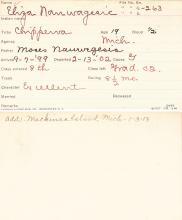 Name Eliza Nauwagesic
Tribe Chippewa Age 19 Blood 1/2
Agency Mich.
Father Moses Nauwagesic
Arrived 9-7-'99 Departed 2-13-02 Cause
Class entered 8th Class left Grad. 02.
Trade During 8 1/2 mo.
Character Excellent
Married Deceased
Add. Mackinac Island, Mich. 1-3-13